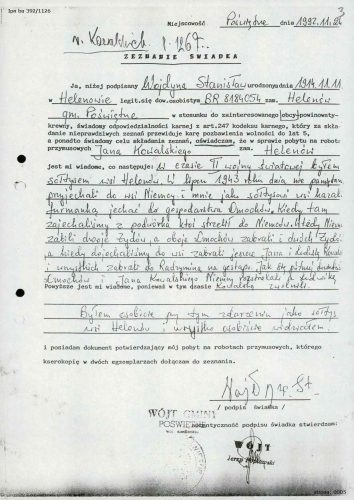 Ipn bu 392/1126
3
Miejscowość Poświętne dnia 1992.11.24
ZEZNANIE ŚWIADKA
Ja, niżej podpisany Wojdyna Stanisław urodzony dnia 1914.11.11
w Helenowie legit.się dow.osobistym BR 8184054 zam. Helenów
gm. Poświętne w stosunku do zainteresowanego obcy/powinowaty-
krewny, świadomy odpowiedzialności karnej z art.247 kodeksu karnego, który za skła-
danie nieprawdziwych zeznań przewiduje karę pozbawienia wolności do lat 5,
a ponadto świadomy celu składania zeznań, oświadczam, że w sprawie pobytu na robotach
przymusowych Jana Kowalskiego zam. Helenów
jest mi wiadome, co następuje: w czasie II wojny światowej byłem
sołtysem wsi Helenów. W lipcu 1943 roku dnia nie pamiętam
przyjechali do wsi Niemcy i mnie jako sołtysowi wsi kazali
furmanką jechać do gospodarstwa Ćmochów. Kiedy tam
zajechaliśmy z podwórka ktoś strzelił do Niemców. Wtedy Niemcy
zabili dwoje żydów, a oboje Ćmochów zabrali i dwóch Żydów
a kiedy dojechaliśmy do wsi zabrali jeszcze Jana i Ludwikę Kowalskich
i wszystkich zabrali do Radzymina na gestapo. Jak się później
Ćmochów i Jana Kowalskiego Niemcy rozstrzelali a Ludwikę
Powyższe jest mi wiadome, ponieważ w tym czasie Kowalską zwolnili.
Byłem osobiście przy tym zdarzeniu jako sołtys
wsi Helenów i wszystko osobiście widziałem.
i posiadam dokument potwierdzający mój pobyt na robotach przymusowych, którego
kserokopię w dwóch egzemplarzach dołączam do zeznania.
/ podpis świadka /
WÓJT GMINY
POŚWIĘTNE
woj. ostrołęckie
autentyczność podpisu świadka stwierdzam:
WÓJT
Jerzy
strona: 0005